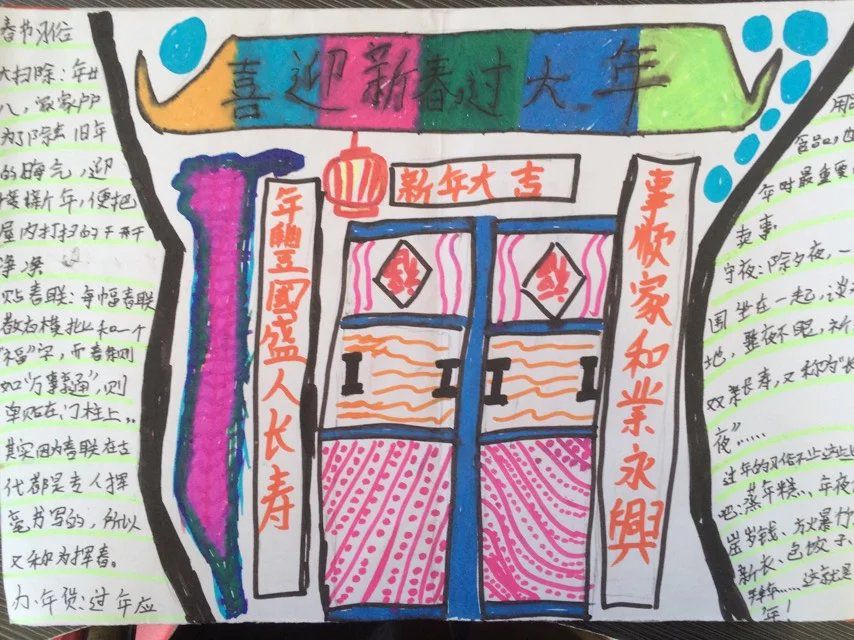 喜迎新春过大年
新年大吉
年豐國盛人长寿
事顺家和業永興
福
福
春节习俗
大扫除：年廿
八，家家户户
为了除去旧年
的晦气，迎
接新年，便把
屋内打扫的干干
净净
贴春联：每幅春联
都有横批和一个
"福"字，而春条则
如"万事通"，则
单贴在门柱上..
其实因为春联在古
代都是专人挥
毫书写的，所以
又称为挥春。
办年货：过年应
用
食品，也
年时最重要
卖事
守夜：除夕夜，一
围坐在一起，谈
地，整夜不眠，祈
双亲长寿，又称为"长
夜"……
过年的习俗不止这些
吧：蒸年糕、年夜
压岁钱、放爆竹
新衣、包饺子、
……这就是
年！